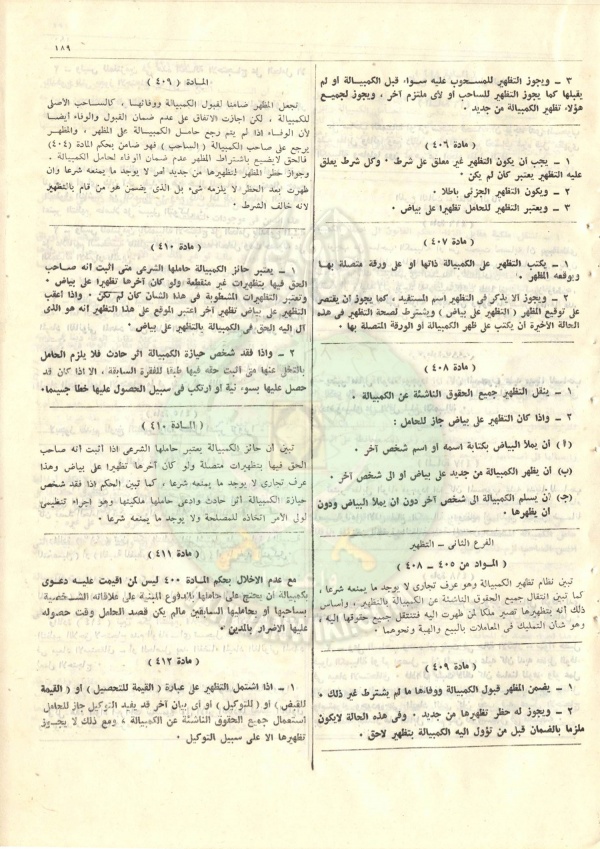 ١٨٩
٣ ــ ويجوز التظهير للمسحوب عليه سواء قبل الكمبيالة او لم
يقبلها كما يجوز التظهير للساحب او لأى ملتزم آخر ، ويجوز لجميع
هؤلاء تظهير الكمبيالة من جديد .
مادة ( ٤٠٦ )
١ ــ يجب ان يكون التظهير غير معلق على شرط . وكل شرط يعلق
عليه التظهير يعتبر كان لم يكن .
٢ ــ ويكون التظهير الجزئى باطلا .
٣ ــ ويعتبر التظهير للحامل تظهيرا على بياض .
مادة ( ٤٠٧ )
١ ــ يكتب التظهير على الكمبيالة ذاتها او على ورقة متصلة بها
ويوقعه المظهر .
٢ ــ ويجوز ألا يذكر فى التظهير اسم المستفيد ، كما يجوز ان يقتصر
على توقيع المظهر ( التظهير على بياض ) ويشترط لصحة التظهير فى هذه
الحالة الأخيرة ان يكتب على ظهر الكمبيالة او الورقة المتصلة بها .
مادة ( ٤٠٨ )
١ ــ ينقل التظهير جميع الحقوق الناشئة عن الكمبيالة .
٢ ــ واذا كان التظهير على بياض جاز للحامل :
( أ ) ان يملأ البياض بكتابة اسمه او اسم شخص آخر .
(ب) ان يظهر الكمبيالة من جديد على بياض او الى شخص آخر .
(ج) ان يسلم الكمبيالة الى شخص آخر دون ان يملأ البياض ودون
ان يظهرها .
الفرع الثانى ــ التظهير
( المواد من ٤٠٥ ــ ٤٠٨ )
تبين نظام تظهير الكمبيالة وهو عرف تجارى لا يوجد ما يمنعه شرعا ،
كما تبين انتقال جميع الحقوق الناشئة عن الكمبيالة بالتظهير ، وأساس
ذلك أنه بتظهيرها تصير ملكا لمن ظهرت اليه فتنتقل جميع حقوقها اليه ،
وهو شأن التمليك فى المعاملات بالبيع والهبة ونحوهما .
مادة ( ٤٠٩ )
١ ــ يضمن المظهر قبول الكمبيالة ووفاءها ما لم يشترط غير ذلك .
٢ ــ ويجوز له حظر تظهيرها من جديد . وفى هذه الحالة لا يكون
ملزما بالضمان قبل من تؤول اليه الكمبيالة بتظهير لاحق .
المادة ( ٤٠٩ )
تجعل المظهر ضامنا لقبول الكمبيالة ووفائها ، كالساحب الأصلى
للكمبيالة ، لكن اجازت الاتفاق على عدم ضمان القبول والوفاء أيضا
لأن الوفاء اذا لم يتم رجع حامل الكمبيالة على المظهر ، والمظهر
يرجع على صاحب الكمبيالة ( الساحب ) فهو ضامن بحكم المادة (٤٠٤)
فالحق لايضيع باشتراط المظهر عدم ضمان الوفاء لحامل الكمبيالة .
وجواز حظر المظهر لتظهيرها من جديد أمر لا يوجد ما يمنعه شرعا وان
ظهرت بعد الحظر لا يلزمه شىء بل الذى يضمن هو من قام بالتظهير
لأنه خالف الشرط .
مادة ( ٤١٠ )
١ ــ يعتبر حائز الكمبيالة حاملها الشرعى متى اثبت انه صاحب
الحق فيها بتظهيرات غير منقطعة ولو كان آخرها تظهيرا على بياض .
وتعتبر التظهيرات المشطوبة فى هذا الشأن كأن لم تكن . واذا أعقب
التظهير على بياض تظهير آخر اعتبر الموقع على هذا التظهير انه هو الذى
آل اليه الحق فى الكمبيالة بالتظهير على بياض .
٢ ــ واذا فقد شخص حيازة الكمبيالة اثر حادث فلا يلزم الحامل
بالتخلى عنها متى اثبت حقه فيها طبقا للفقرة السابقة ، الا اذا كان قد
حصل عليها بسوء نية او ارتكب فى سبيل الحصول عليها خطأ جسيما .
المادة ( ٤١٠ )
تبين أن حائز الكمبيالة يعتبر حاملها الشرعى اذا اثبت انه صاحب
الحق فيها بتظهيرات متصلة ولو كان آخرها تظهيرا على بياض وهذا
عرف تجارى لا يوجد ما يمنعه شرعا ، كما تبين الحكم اذا فقد شخص
حيازة الكمبيالة اثر حادث وادعى حاملها ملكيتها وهو اجراء تنظيمى
لولى الأمر اتخاذه للمصلحة ولا يوجد ما يمنعه شرعا .
مادة ( ٤١١ )
مع عدم الاخلال بحكم المادة ٤٠٠ ليس لمن اقيمت عليه دعوى
بكمبيالة أن يحتج على حاملها بالدفوع المبنية على علاقاته الشخصية
بساحبها أو بحامليها السابقين مالم يكن قصد الحامل وقت حصوله
عليها الاضرار بالمدين .
مادة ( ٤١٢ )
١ ــ اذا اشتمل التظهير على عبارة ( القيمة للتحصيل ) او ( القيمة
للقبض ) او ( للتوكيل ) أو أى بيان آخر قد يفيد التوكيل جاز للحامل
استعمال جميع الحقوق الناشئة عن الكمبيالة ، ومع ذلك لا يجوز
تظهيرها الا على سبيل التوكيل .